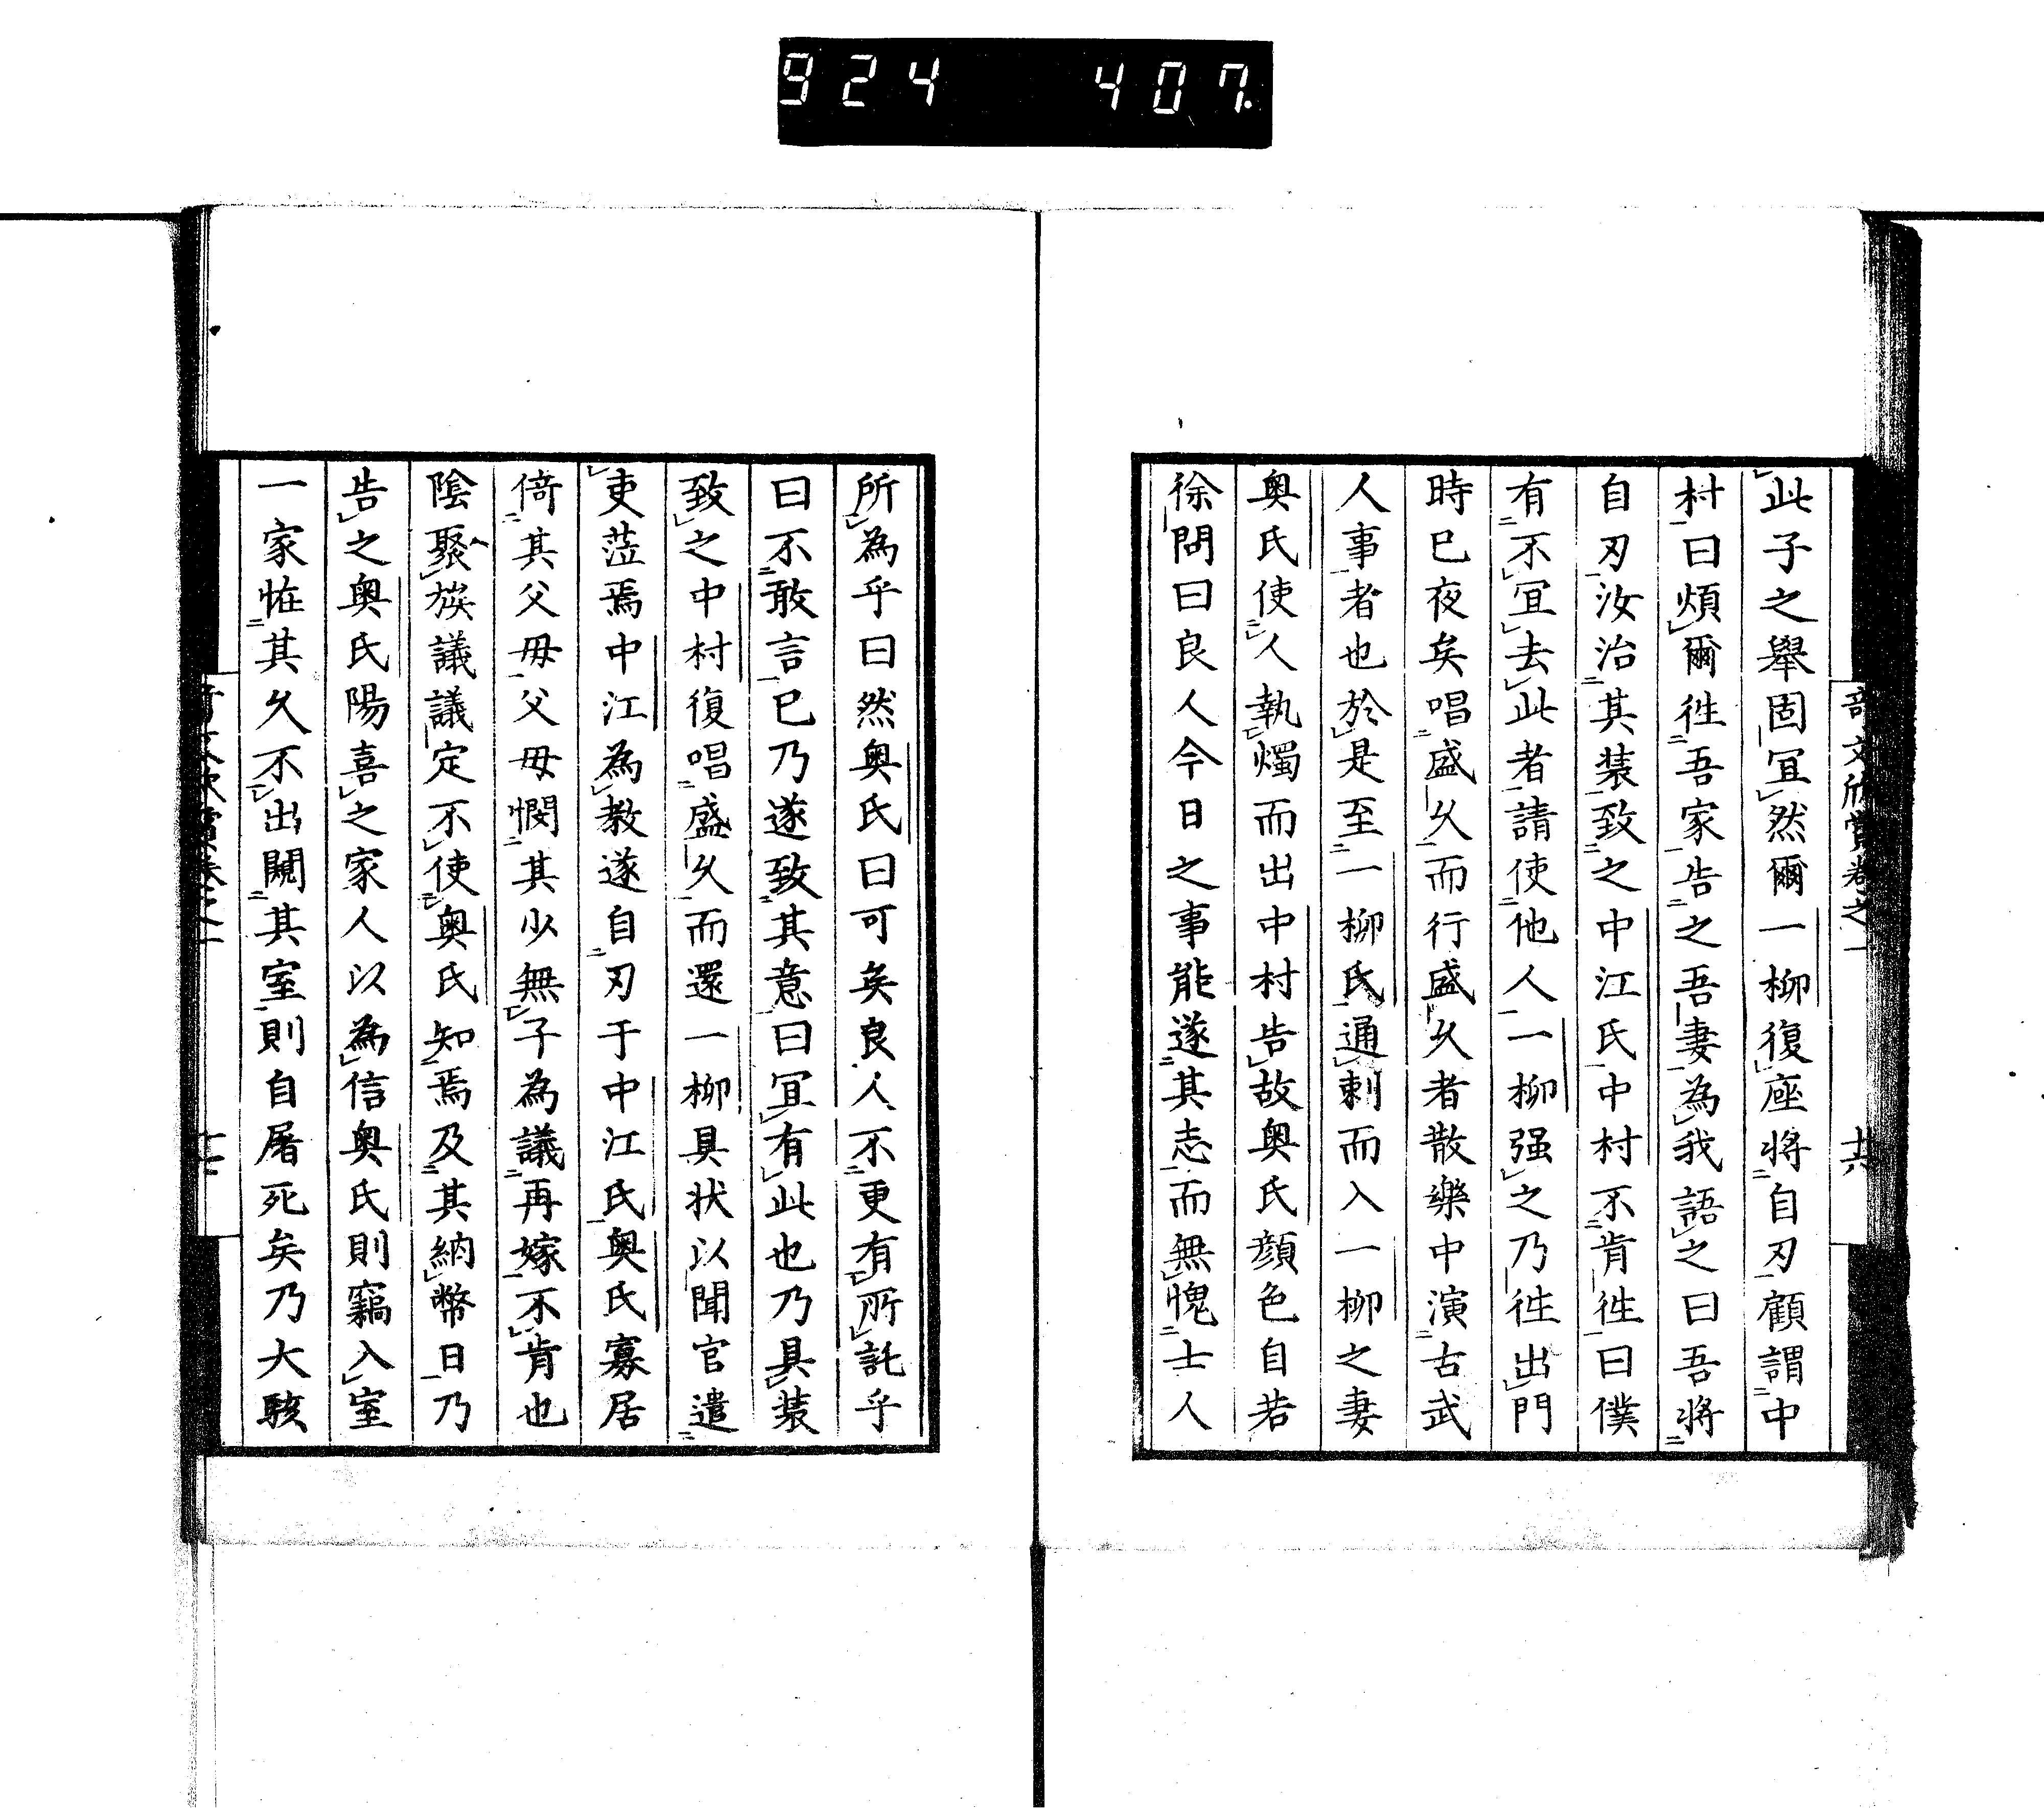 924 407.
奇文欣賞卷之一 共
此子之舉固冝然爾一柳復座將自刃顧謂中
村曰煩爾徃吾家告之吾妻為我語之曰吾將
自刃汝治其装致之中江氏中村不肯徃曰僕
有不冝去此者請使他人一柳强之乃徃出門
時已夜矣唱盛久而行盛久者散樂中演古武
人事者也於是至一柳氏通刺而入一柳之妻
奥氏使人執燭而出中村告故奥氏顔色自若
徐問曰良人今日之事能遂其志而無愧士人
所為乎曰然奥氏曰可矣良人不更有所託乎
曰不敢言已乃遂致其意曰冝有此也乃具装
致之中村復唱盛久而還一柳具状以聞官遣
吏莅焉中江為教遂自刃于中江氏奥氏寡居
倚其父毋父毋憫其少無子為議再嫁不肯也
陰聚族議議定不使奥氏知焉及其納幣日乃
告之奥氏陽喜之家人以為信奥氏則竊入室
一家恠其久不出闚其室則自屠死矣乃大駭